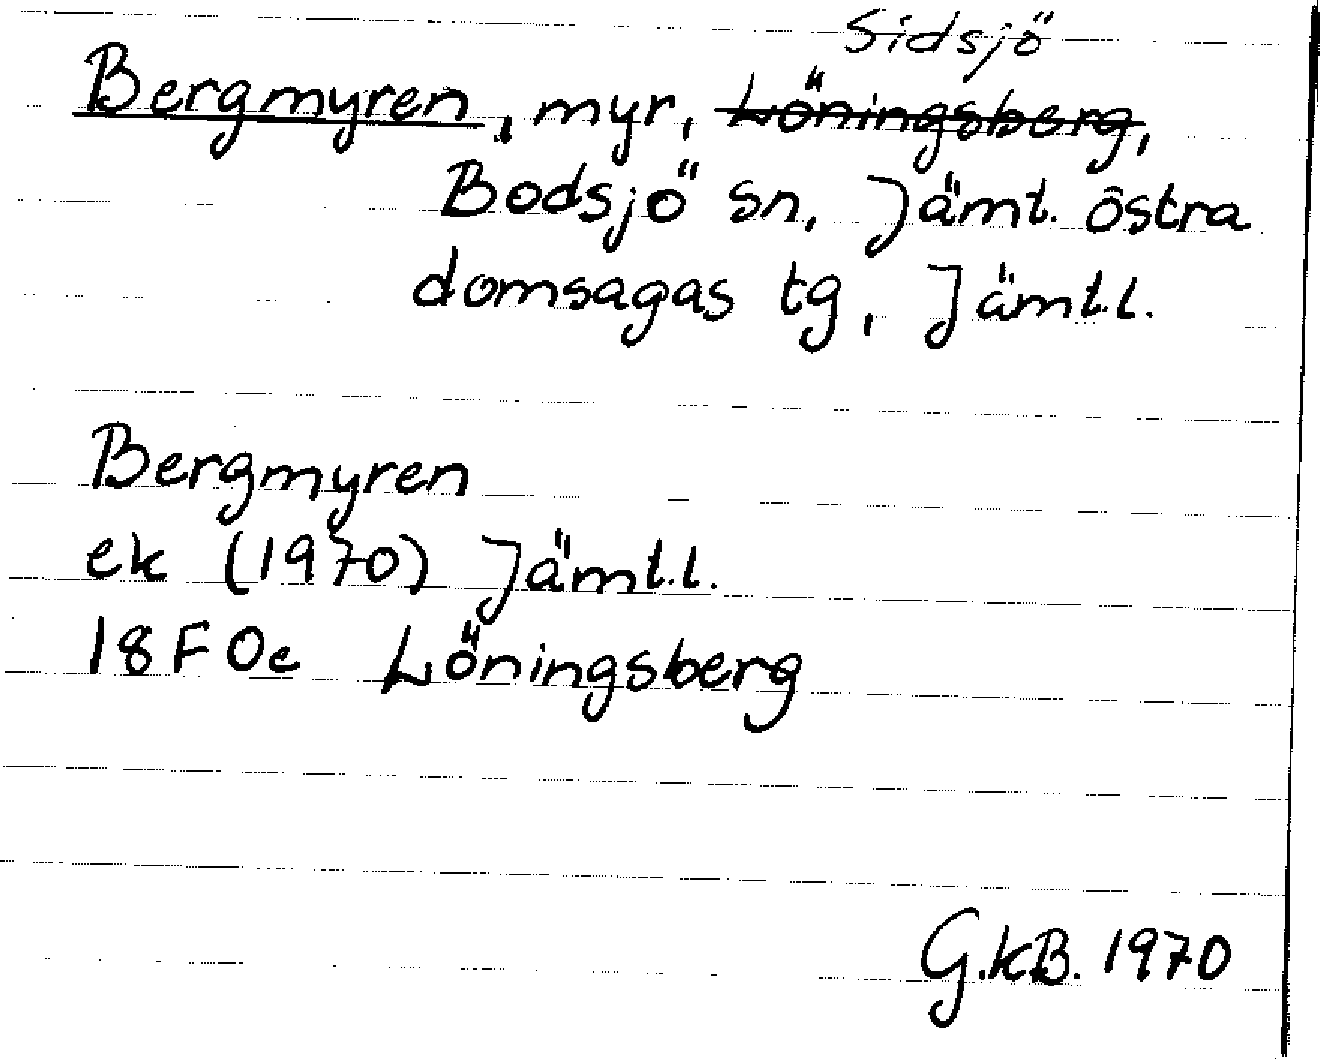 Sidsjö
Bergmyren, myr, Löningsberg,
Bodsjö sn, Jämt. östra
domsagas tg, Jämt.l.
Bergmyren
ek (1970) Jämt.l.
18F 0e Löningsberg
G.kB. 1970